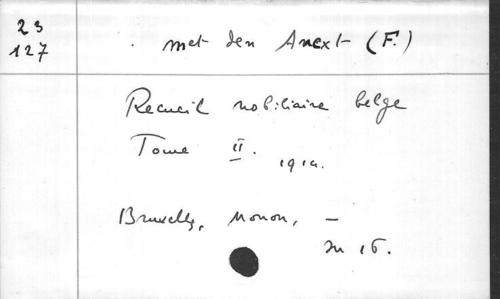 23
127
met den Anext (F.)
Recueil nobiliaire belge
Tome II.
191
Bruxelles, Monon, —
in 16.